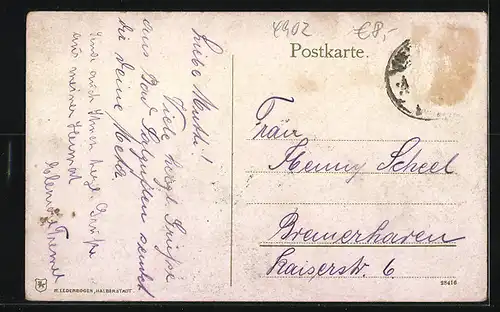 4902 €8,-
Postkarte.
Liebe Mutti!
Viele herzl. Grüße
aus Bad Salzuflen sendet
dir deine
Sende auch Ihnen herzl. Grüße
aus meiner Heimat
Fräu
Henny Scheel
Bremerhaven
Kaiserstr. 6
M. LEDERBOGEN, HALBERSTADT.
28416